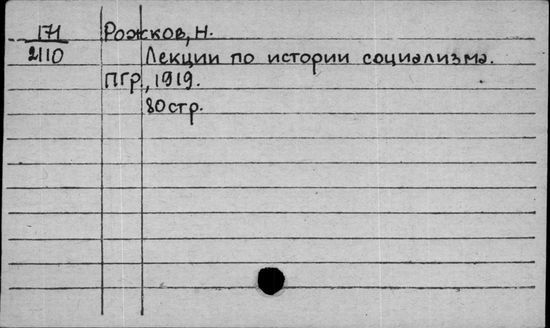 171 Рожков, Н.
2110 Лекции по истории социализма.
Пгр., 1919.
80 стр.